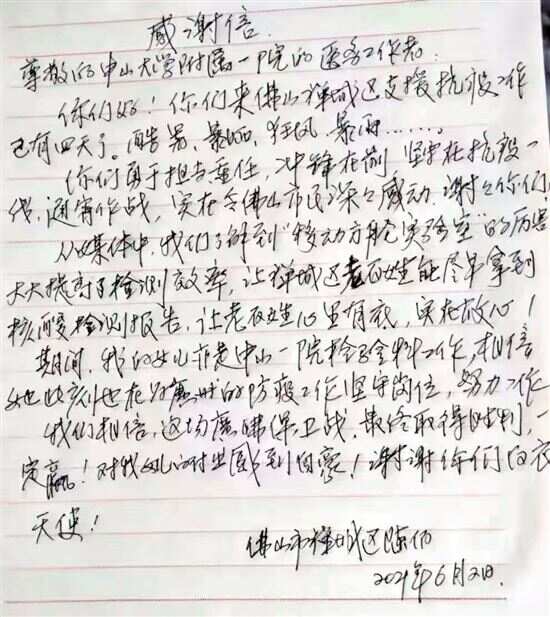 感谢信
尊敬的中山大学附属一院的医务工作者:
你们好!你们来佛山禅城区支援抗疫工作
已有四天了。酷暑、暴晒、狂风、暴雨……。
你们勇于担当重任,冲锋在前,坚守在抗疫一
线,通宵作战,实在令佛山市民深々感动,谢々你们
从媒体中,我们了解到“移动方舱实验室”的厉害
大大提高了检测效率,让禅城区老百姓能尽早拿到
核酸检测报告,让老百姓心里有底,实在放心!
期间,我的女儿亦是中山一院检验科工作,相信
她此刻也在为广州的防疫工作坚守岗位,努力工作
我们相信,这场广佛保卫战,最终取得胜利,一
定赢!对我女儿的付出感到自豪!谢谢你们白衣
天使!
佛山市禅城区陈伯
2021年6月2日.